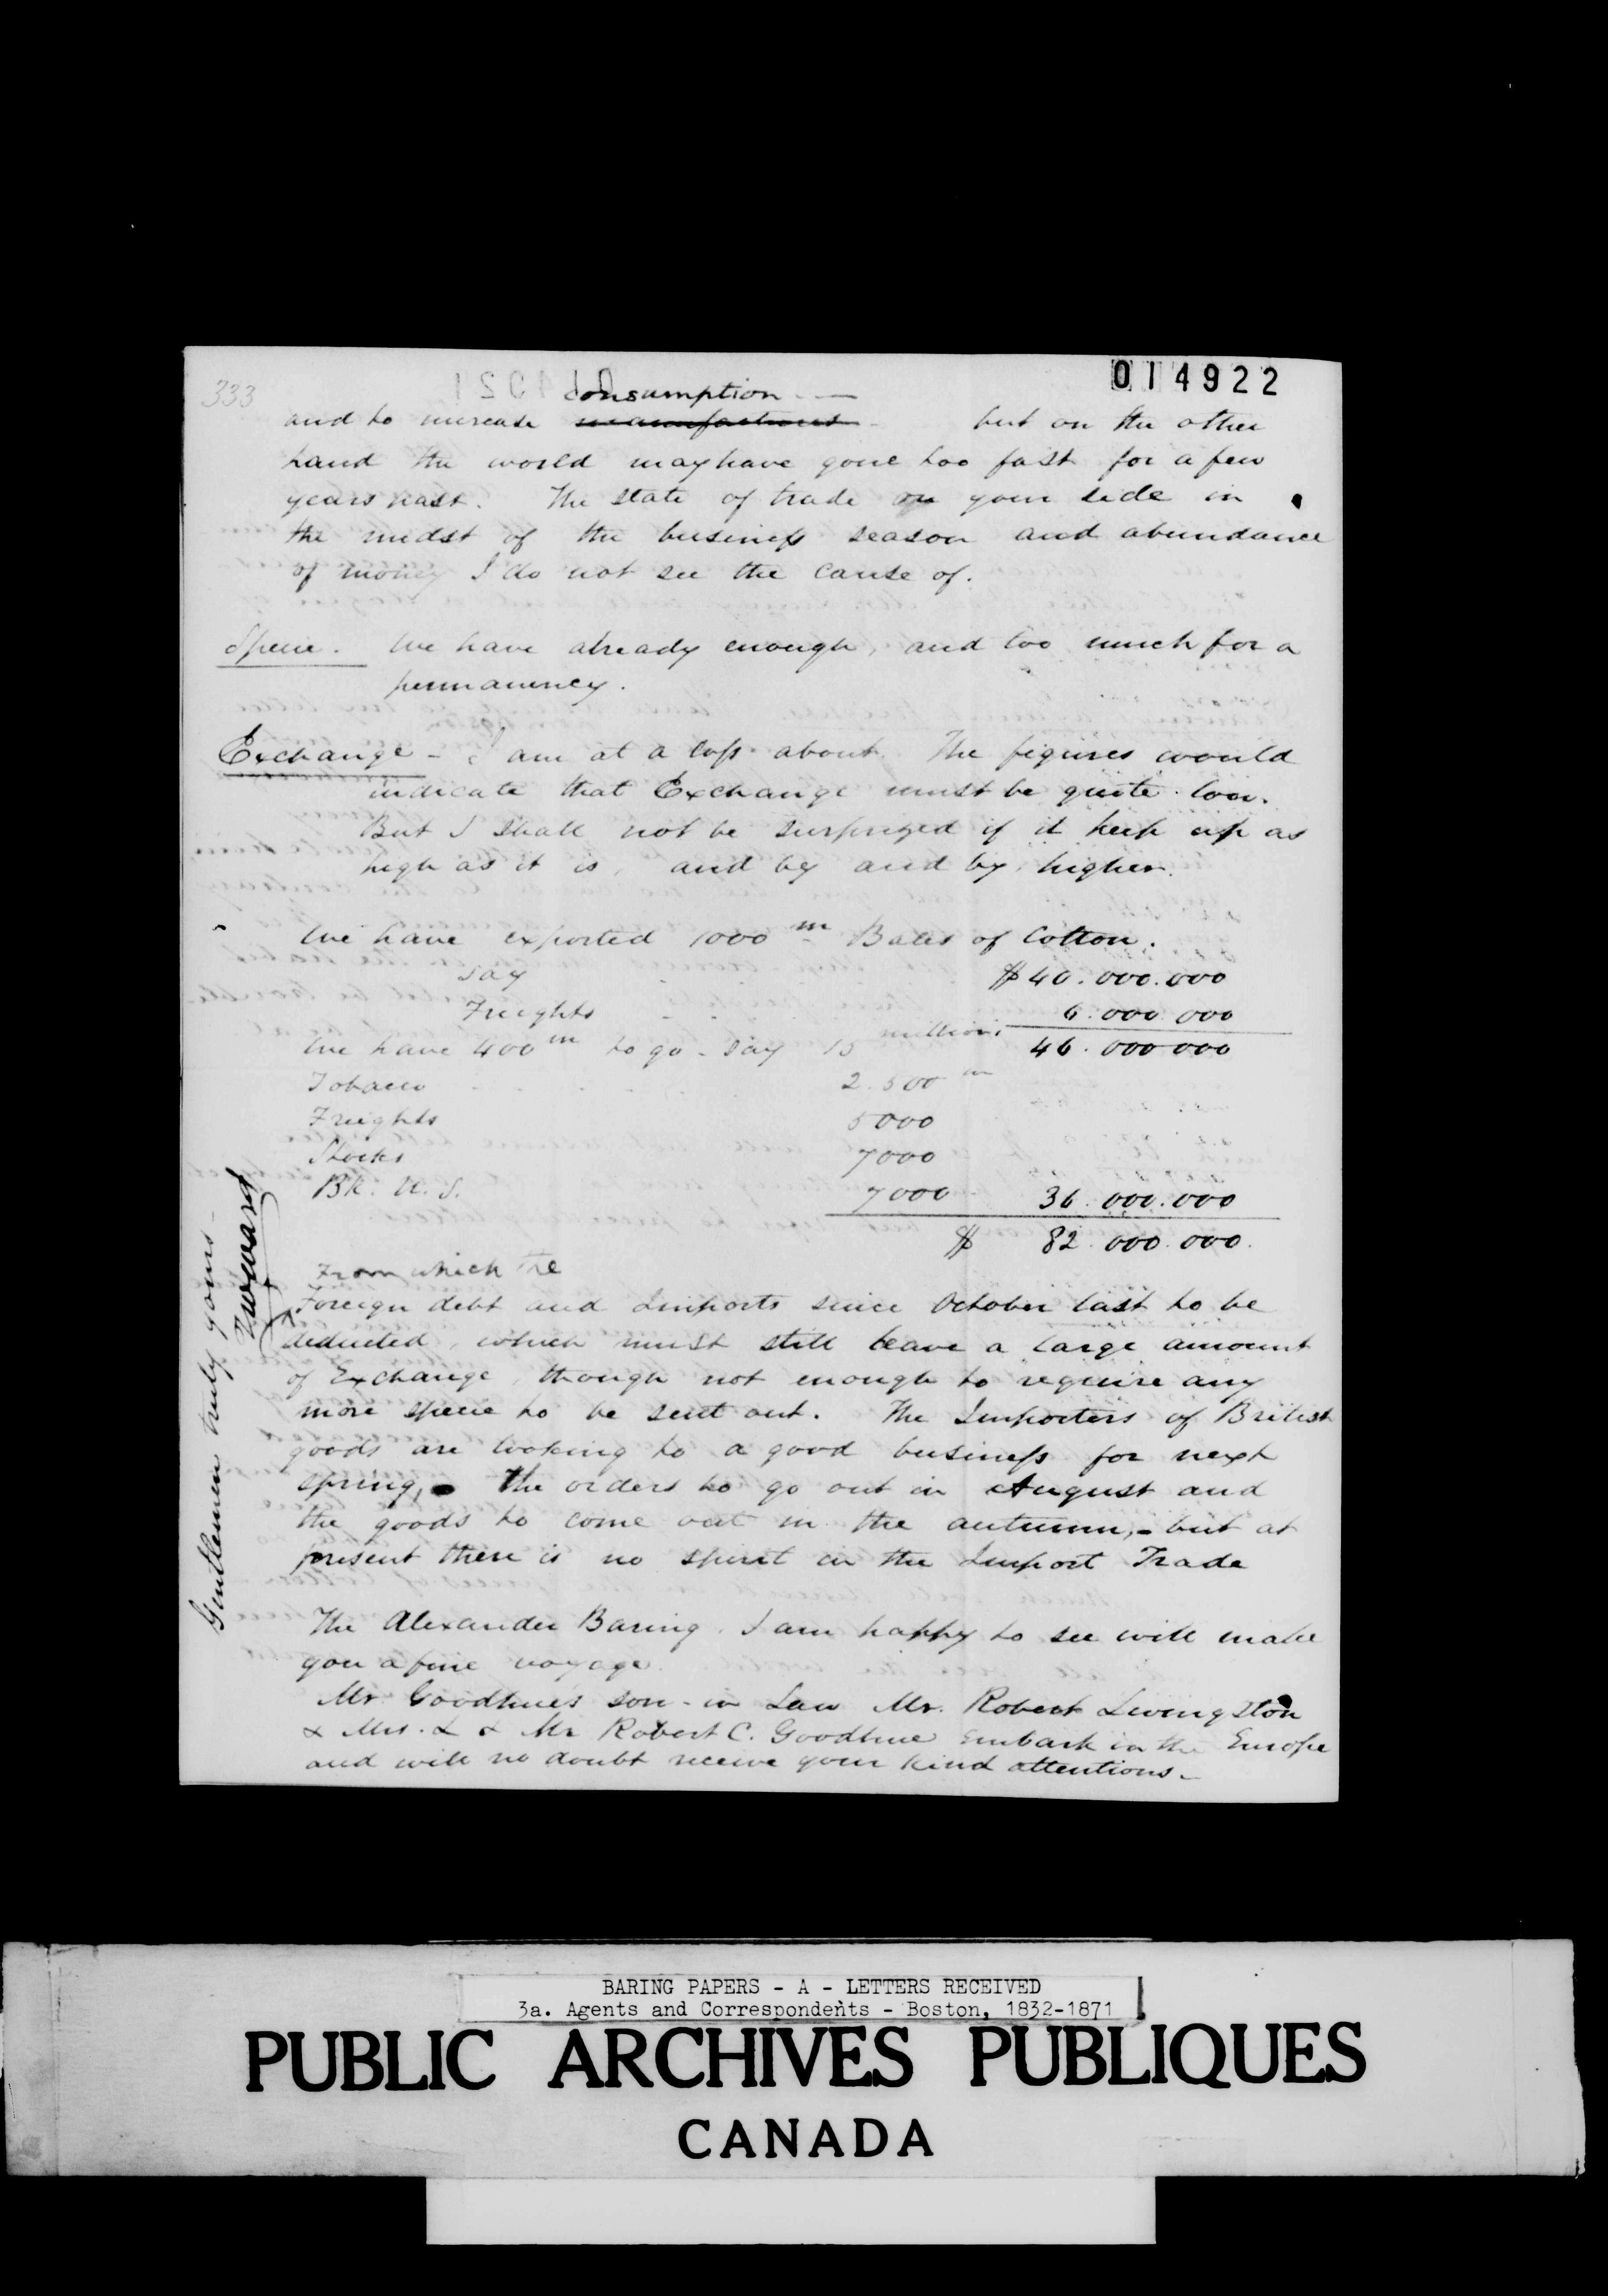 333
014922
consumption
and to increase manufactures but on the other
hand the world may have gone too fast for a few
years past. The state of trade on your side in
the midst of the business season and abundance
of money I do not see the cause of.
Specie. We have already enough, and too much for a
permanency.
Exchange - I am at a loss about. The figures would
indicate that Exchange must be quite low.
But I shall not be surprized if it keep up as
high as it is, and by and by higher.
We have exported 1000 m Bales of Cotton.
say $40.000.000
Freights 6.000.000
We have 400 m to go - say 15 millions 46.000000
Tobacco 2.500 m
Freights 5000
Stocks 7000
Bk. U.S. 7000 36.000.000
$ 82.000.000.
From which the
Foreign debt and Imports since October last to be
deducted, which must still leave a large amount
of Exchange, though not enough to require any
more specie to be sent out. The Importers of British
goods are looking to a good business for next
spring, the orders to go out in August and
the goods to come out in the autumn, - but at
present there is no spirit in the Import Trade
The Alexander Baring I am happy to see will make
you a fine voyage.
Mr Goodhue's son-in Law Mr. Robert Livingston
& Mrs. L & Mr Robert C. Goodhue embark in the Europe
and will no doubt receive your kind attentions.
Gentlemen truly yours
TWWard
BARING PAPERS - A - LETTERS RECEIVED
3a. Agents and Correspondents - Boston, 1832-1871
PUBLIC ARCHIVES PUBLIQUES
CANADA